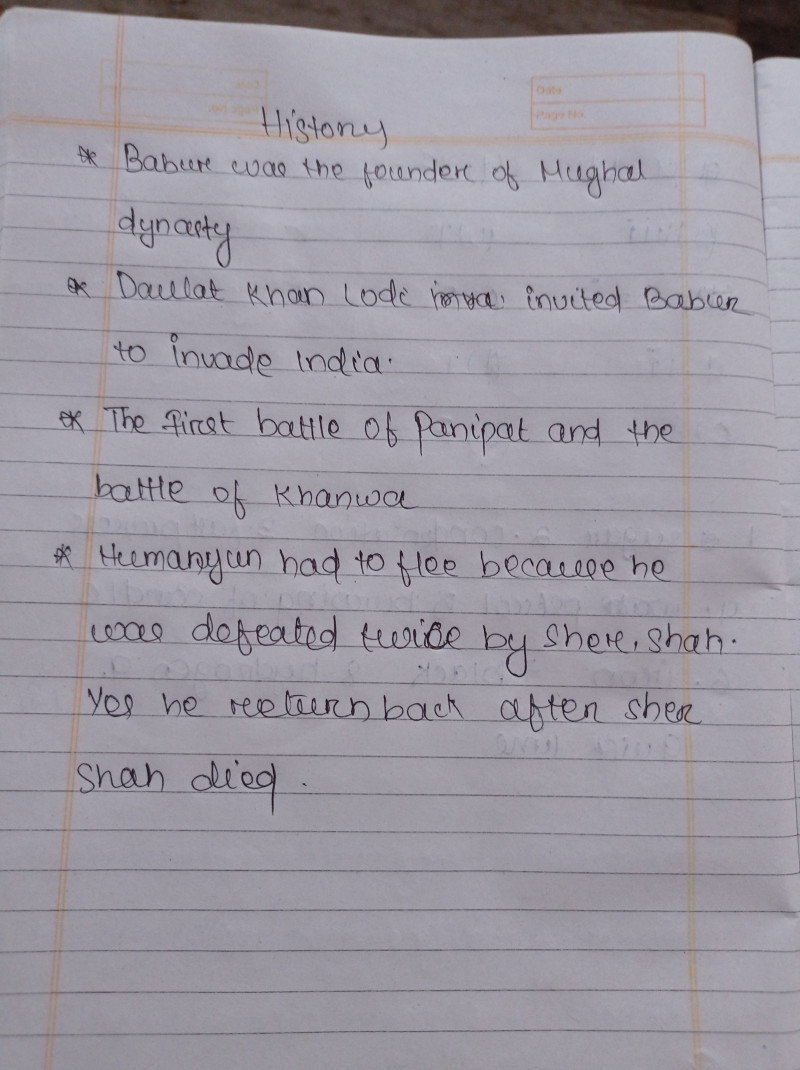 Date
Page No.
History
* Babur was the founder of Mughal
dynasty
* Daullat Khan Lodi invited Babur
to invade India.
* The first battle of Panipat and the
battle of Khanwa
* Humanyun had to flee because he
was defeated twice by Sher, Shah.
Yes he return back after Sher
Shah died.